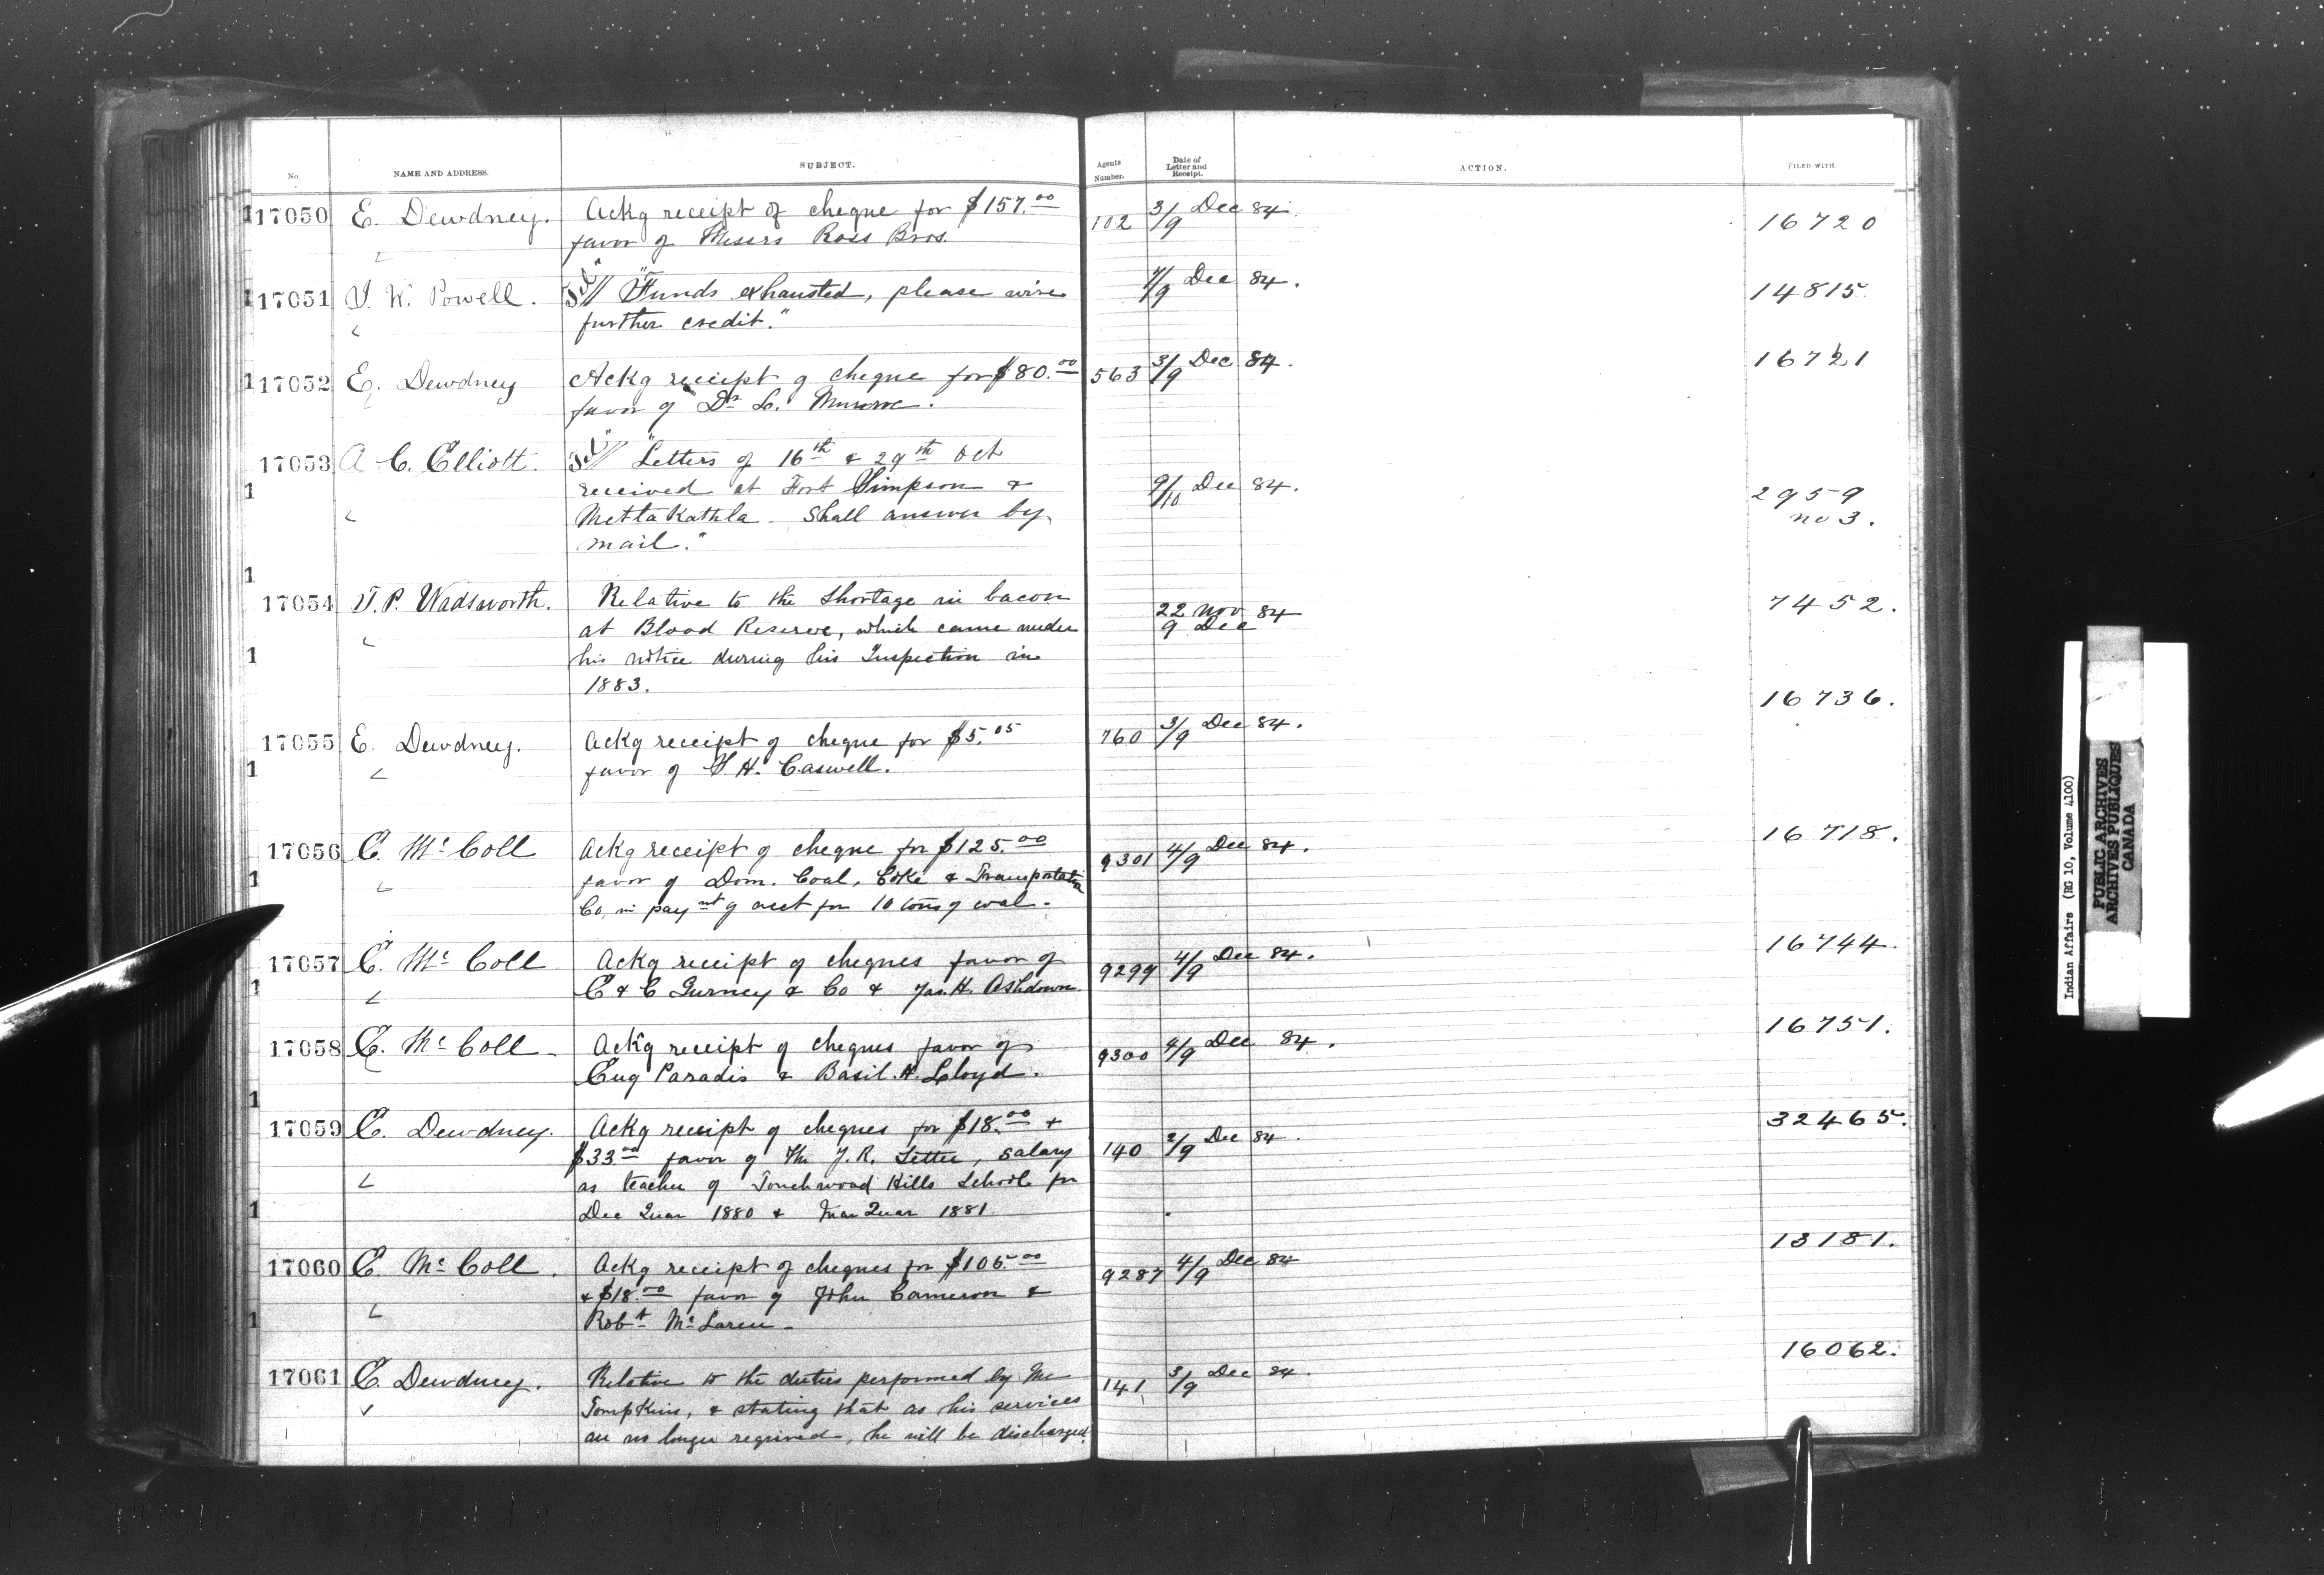 No. NAME AND ADDRESS. SUBJECT. Agents Number. Date of Letter and Receipt. ACTION. FILED WITH.
17050 E. Dewdney. Ackg receipt of cheque for $157.00 102 3/9 Dec 84. 16720
favor of Messrs Ross Bros.
17051 I. W. Powell. Tel "Funds exhausted, please wire 4/9 Dec 84. 14815
further credit."
17052 E. Dewdney Ackg receipt of cheque for $80.00 563 3/9 Dec 84. 16721
favor of Dr L. Munroe.
17053 A. C. Elliott. Tel "Letters of 16th & 29th Oct
received at Fort Simpson & 9/10 Dec 84. 2959
Mettakathla. Shall answer by no 3.
mail."
17054 T. P. Wadsworth. Relative to the shortage in bacon 22 Nov 84 7452.
at Blood Reserve, which came under 9 Dec
his notice during his Inspection in
1883.
17055 E. Dewdney. Ackg receipt of cheque for $5.05 760 3/9 Dec 84. 16736.
favor of T. H. Caswell.
17056 E. Mc Coll Ackg receipt of cheque for $125.00 9301 4/9 Dec 84. 16718.
favor of Dom. Coal, Coke & Transportation
Co, in paymt of acct for 10 tons of coal.
17057 E. Mc Coll Ackg receipt of cheques favor of 9299 4/9 Dec 84. 16744.
E & C Gurney & Co & Jas. H. Ashdown.
17058 E. Mc Coll Ackg receipt of cheques favor of 9300 4/9 Dec 84. 16751.
Eug Paradis & Basil. H. Lloyd.
17059 E. Dewdney. Ackg receipt of cheques for $18.00 + 140 2/9 Dec 84. 32465.
$33.00 favor of Mr J. R. Settee, salary
as teacher of Touchwood Hills School for
Dec Quar 1880 & Mar Quar 1881.
17060 E. Mc Coll. Ackg receipt of cheques for $106.00 9287 4/9 Dec 84 13181.
& $18.00 favor of John Cameron &
Robt Mc Laren
17061 E. Dewdney. Relative to the duties performed by Mr 141 3/9 Dec 84. 16062.
Tompkins, & stating that as his services
are no longer required, he will be discharged.
Indian Affairs (RG 10, Volume 4100)
PUBLIC ARCHIVES
ARCHIVES PUBLIQUES
CANADA